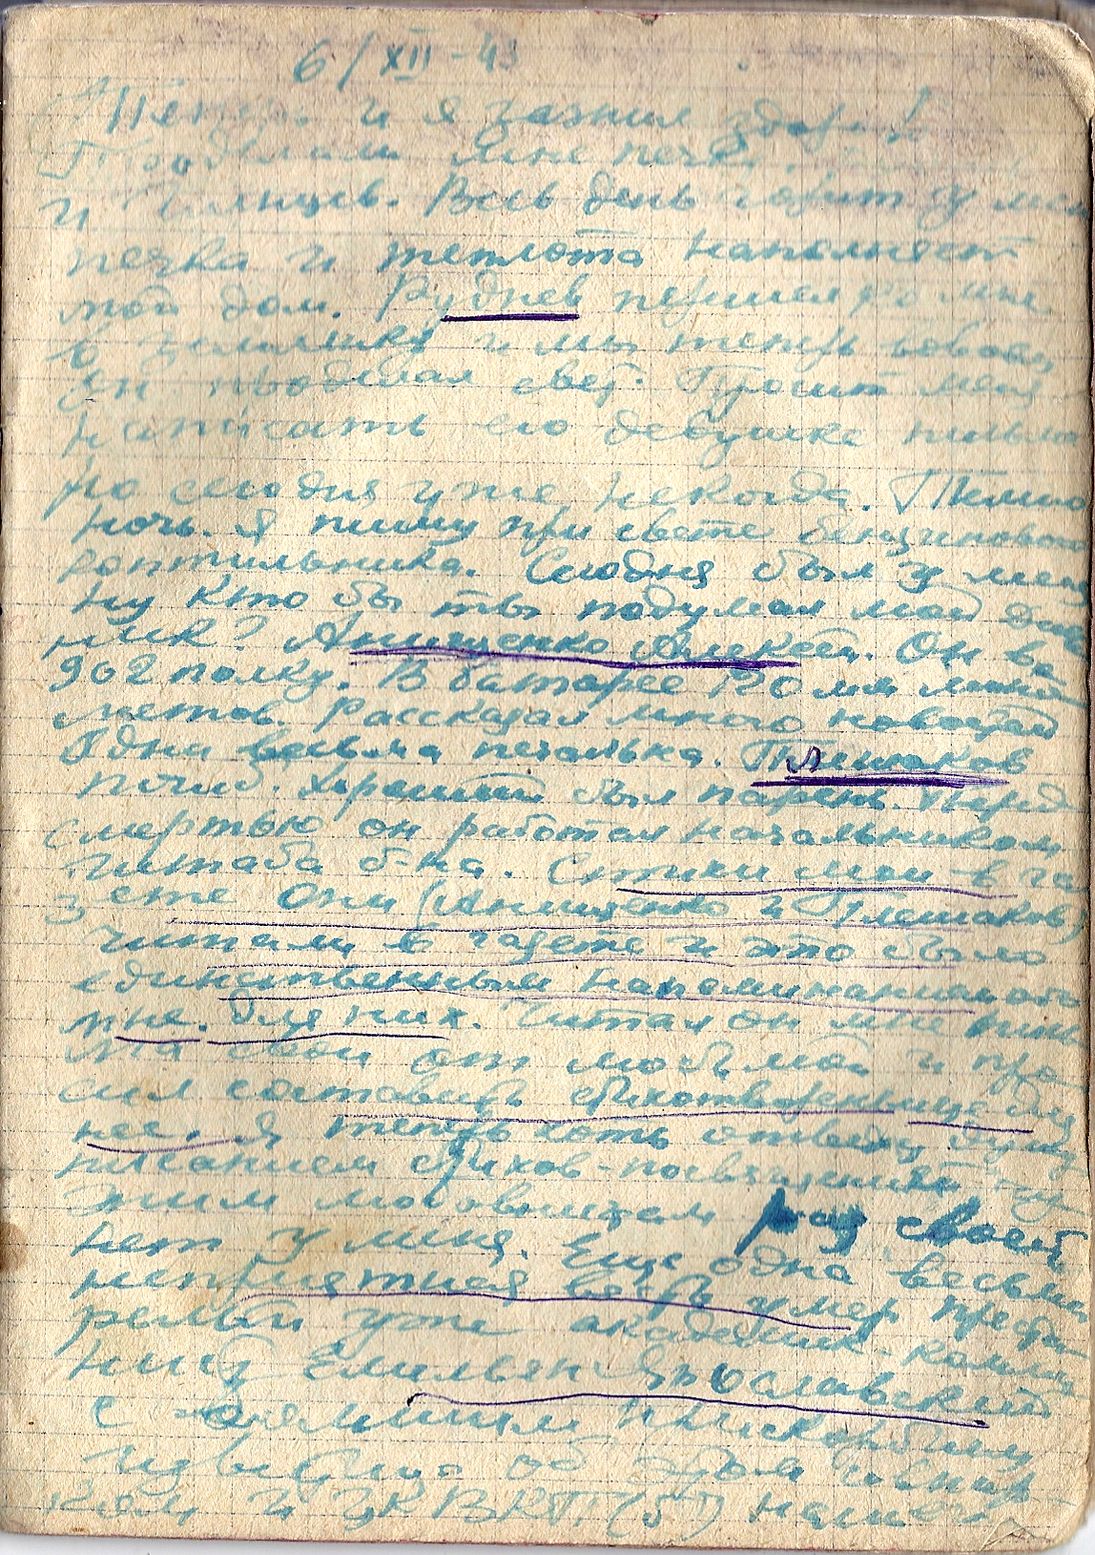 6/XII-43
Теперь и я зажил здоров!
мне печку.
и Весь день горит у меня
печка и теплота наполняет
мой дом. Руднев перешел ко мне
в землянку и мы теперь вдвоем
Он проделал свет. Просит меня
написать его девушке письмо
но сегодня уже некогда. Темно
ночь. Я пишу при свете бензинового
коптильника. Сегодня был у меня
ну кто бы ты подумал мой днев
ник? Анищенко Алексей. Он в
902 полку. В батарее 120 мм мино
метов. Рассказал много новостей
Одна весьма печальна. Плешаков
погиб Хороший был парень. Перед
смертью он работал начальником
штаба б-на. Стихи мои в га
зете Они (Анищенко и Плешаков)
читали в газете и это было
единственным напоминанием обо
мне. Для них. Читал он мне пись
ма свои от любимой и про
сил составить стихотвореньице для
нее. Я теперь хоть отвожу душу
писанием стихов-посвящений чу
жим любовницам раз своей
нет у меня. Еще одна весьма
неприятная весть умер
уже академик-комму
нист Емельян Ярославский
с прискорбием
об этом
и ЦК ВКП(б)